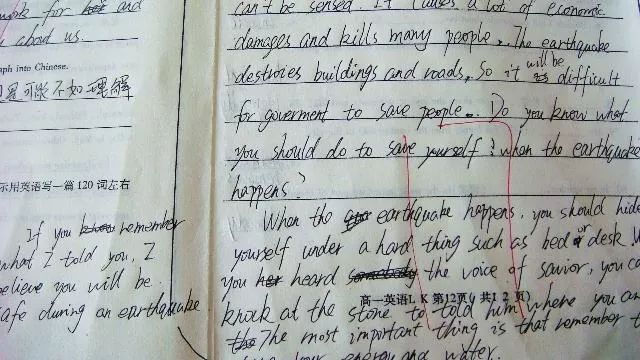 for her and
about us.
aph into Chinese.
可能不如理解
示用英语写一篇 120 词左右
If you know remember
what I told you, I
believe you will be
safe during an earthquake
can't be sensed. It causes a lot of economic
damages and kills many people. The earthquake
destroies buildings and roads, so it will be difficult
for goverment to save people. Do you know what
you should do to save yourself? when the earthquake
happens?
When the earthquake happens, you should hide
yourself under a hard thing such as bed or desk.
you her heard somebody the voice of savior, you ca
高一英语L K 第12页(共1 2 页)
knock at the stone to told him where you an
the The most important thing is that remember t
your energy and water.